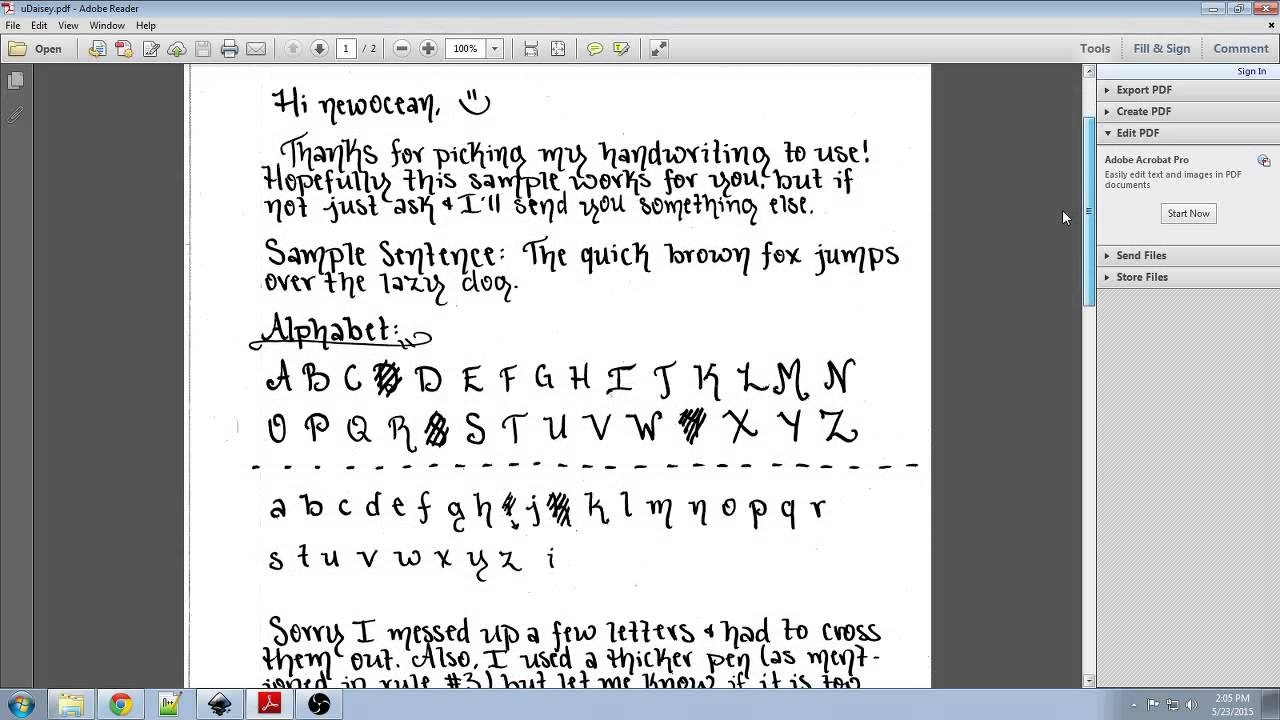 uDaisey.pdf - Adobe Reader
File Edit View Window Help
Open 1 / 2 100% Tools Fill & Sign Comment
Sign In
Export PDF
Create PDF
Edit PDF
Adobe Acrobat Pro
Easily edit text and images in PDF
documents
Start Now
Send Files
Store Files
Hi newocean,
Thanks for picking my handwriting to use!
Hopefully this sample works for you, but if
not just ask & I'll send you something else.
Sample Sentence: The quick brown fox jumps
over the lazy dog.
Alphabet:
A B C D E F G H I J K L M N
O P Q R S T U V W X Y Z
a b c d e f g h j k l m n o p q r
s t u v w x y z i
Sorry I messed up a few letters & had to cross
them out. Also, I used a thicker pen (as ment-
ioned in rule #3) but let me know if it is too
2:05 PM
5/23/2015